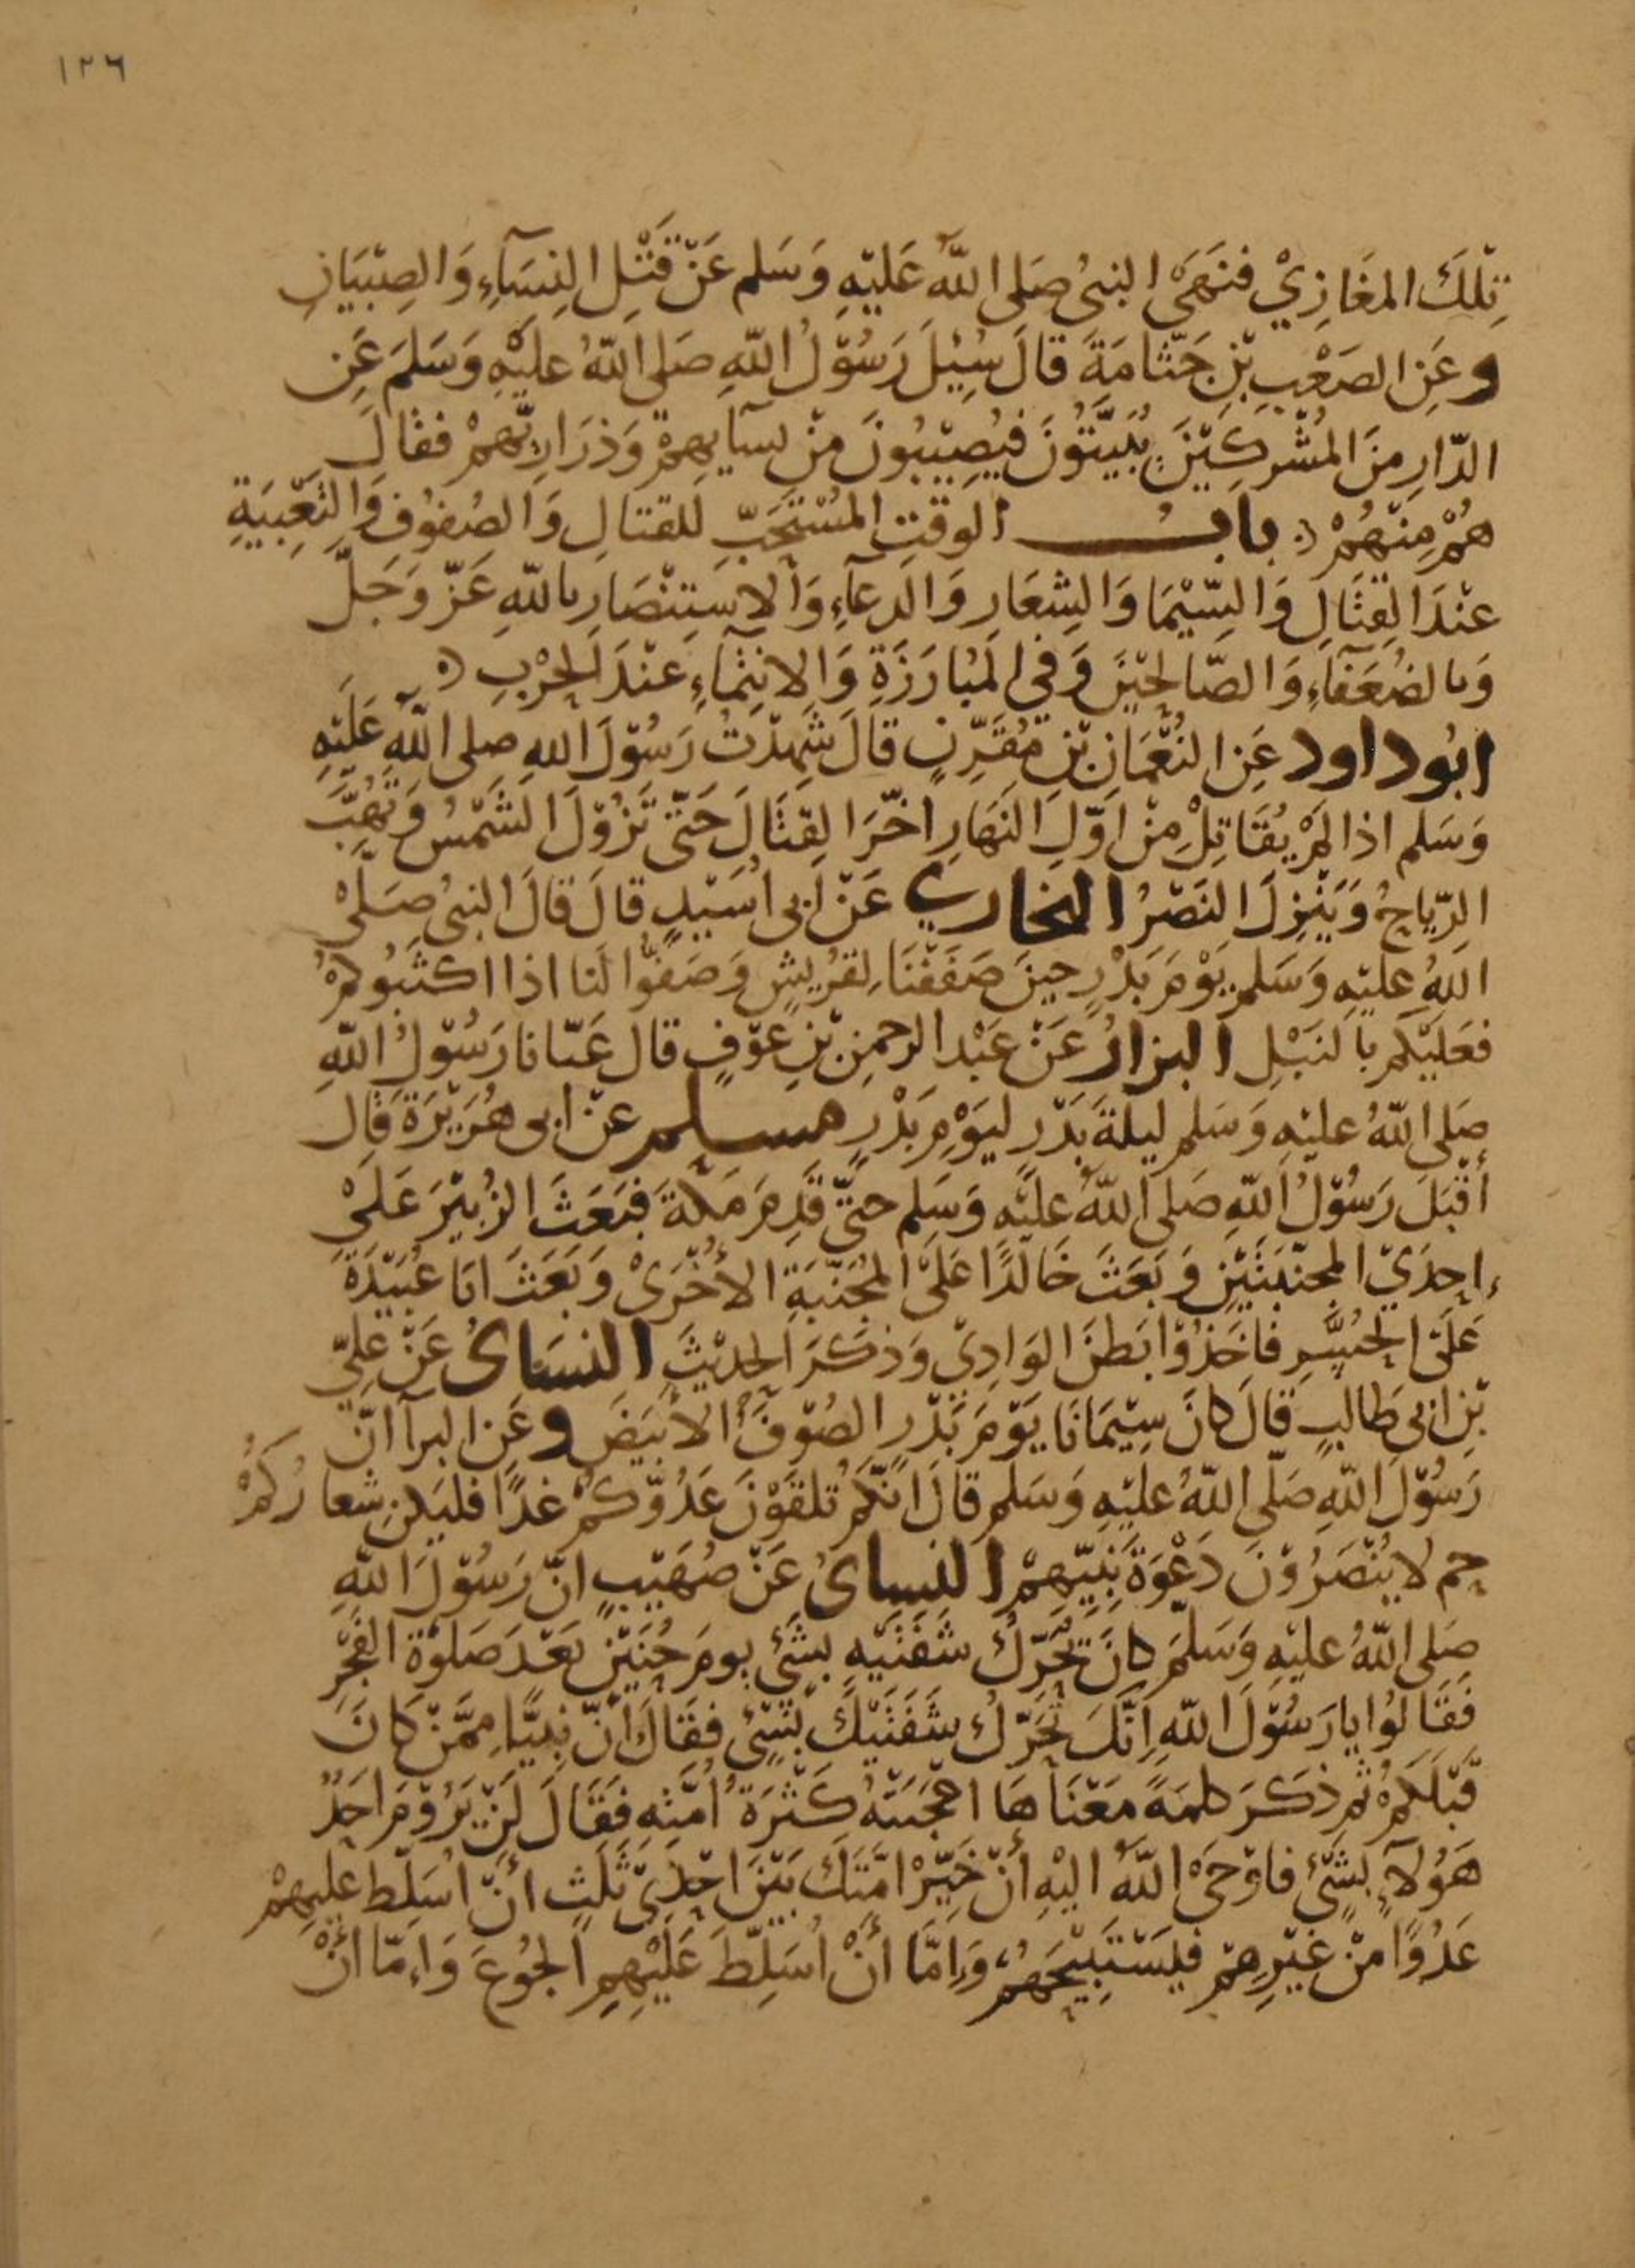 ١٢٦
تِلْكَ المَغَازِيْ فنَهَىْ النبىُ صَلى اللّٰهُ عَليْهِ وَسَلم عَنْ قَتْلِ النِسَآءِ وَالصِبْيَانِ
وعَنِ الصَعْبِ بْنِ جَثّامَةَ قالَ سُئِلَ رَسُوْلُ اللّٰهِ صَلى اللّٰهُ عليْهِ وَسَلمَ عَنِ
الدّارِ مِنَ المُشْرِكِيْنَ يُبَيَّتُوْنَ فيُصِيْبُونَ مِنْ نسآيهِمْ وَذرَارِيّهِمْ فقالَ
هُمْ مِنْهُمْ ؞ بابُ الوَقتِ المُسْتَحَبّ للقتالِ وَالصُفوُفِ وَالتَعْبِيَةِ
عنْدَ القِتَالِ وَالسِّيْمَا وَالشِعَارِ وَالدعآءِ وَالاسَتِنْصَارِ باللّٰهِ عَزّ وَجَلَّ
وَبالضُعَفآءِ وَالصّالحِيْنَ وَفى المُبَارَزَةِ وَالانتِمآءِ عنْدَ الحَرْبِ ؞
ابُوداود عَنِ النُعْمَانِ بْنِ مُقَرِّنٍ قالَ شَهِدْتُ رَسُوْلَ اللهِ صلى اللّٰهُ عَلَيْهِ
وَسَلم اذا لمْ يُقَاتِلْ مِنْ اوّلِ النَهَارِ اخّرَ القِتَالَ حَتّىْ تَزُوْلَ الشَمْسُ وَتَهُبَّ
الرِّيَاحُ وَيَنْزِلَ النَصْرُ البخاري عَنْ ابى اُسَيْدٍ قالَ قالَ النبىُ صَلىْ
اللهُ عليْهِ وَسَلم يَوْمَ بَدْرٍ حينَ صَفَفْنَا لِقُرَيْشٍ وَصَفُّوا لَنا اذا اكثَبُوكمْ
فعَليْكم بالنَبْلِ البزارُ عَنْ عَبْد الرحمنِ بْنِ عَوْفٍ قال عَبّانا رَسُوْلُ اللّٰهِ
صَلى اللّٰهُ عليْهِ وَسَلم ليلَةَ بَدْرٍ ليَوْمِ بَدْرٍ مسلم عنْ ابى هُرَيْرَةَ قالَ
أقْبَلَ رَسُوْلُ اللّٰهِ صَلى اللّٰهُ عليْهِ وَسَلم حتّى قَدِمَ مَكّةَ فبَعَثَ الزُبَيْرَ عَلَىْ
إحدَىْ المجنّبَتَيْنِ وَبَعَثَ خَالدًا عَلَىْ المُجَنّبَةِ الأُخْرَىْ وَبَعَثَ ابَا عُبَيْدَةَ
عَلَى الحُسَّرِ فاخَذُوْا بَطنَ الوَادِىْ وَذكَرَ الحديْثَ النسَائ عَنْ عَلِيّ
بْنِ ابى طَالبٍ قالَ كانَ سِيْمَانَا يَوْمَ بَدْرٍ الصُوْفَ الأبْيَضَ وعَنِ البرآ انّ
رَسُوْلَ اللّٰهِ صَلّى اللّٰهُ عليْهِ وَسَلم قالَ انّكمْ تلقَوْنَ عَدُوّكمْ غدًا فليَكنْ شعارُكمْ
حم لا يُنْصَرُوْنَ دَعْوَةُ نَبِيّهِمْ النسائ عَنْ صُهَيْبٍ انّ رَسُوْلَ اللّٰهِ
صَلى اللّٰهُ عليْهِ وَسَلّمَ كانَ يُحَرّكُ شَفَتَيْهِ بشَئْ يومَ حُنَيْنٍ بَعْدَ صَلوٰةِ الفَجْرِ
فَقَالُوْا يا رَسُوْلَ اللّٰهِ اِنّكَ تُحَرّكُ شَفَتَيْكَ بشَئْ فقَالَ انّ نَبِيًّا مِمّنْ كَانَ
قَبْلَكمْ ثم ذكَرَ كلمَةً مَعْنَاهَا اعْجَبَتْهُ كَثْرَةُ اُمّتِهِ فَقَالَ لَنْ يَرُوْمَ احَدٌ
هَؤُلآءِ بشَئْ فاوْحَىْ اللّٰهُ اليْهِ أنْ خَيّرْ امّتَكَ بَيْنَ احْدَىْ ثَلٰثٍ أنْ اُسَلّطَ عليهِمْ
عَدُوًّا مِنْ غيْرِهِمْ فيَسْتَبِيْحَهُمْ وَإمّا أنْ اُسَلِّطَ عَلَيْهِمِ الجُوْعَ وَاِمّا أنْ